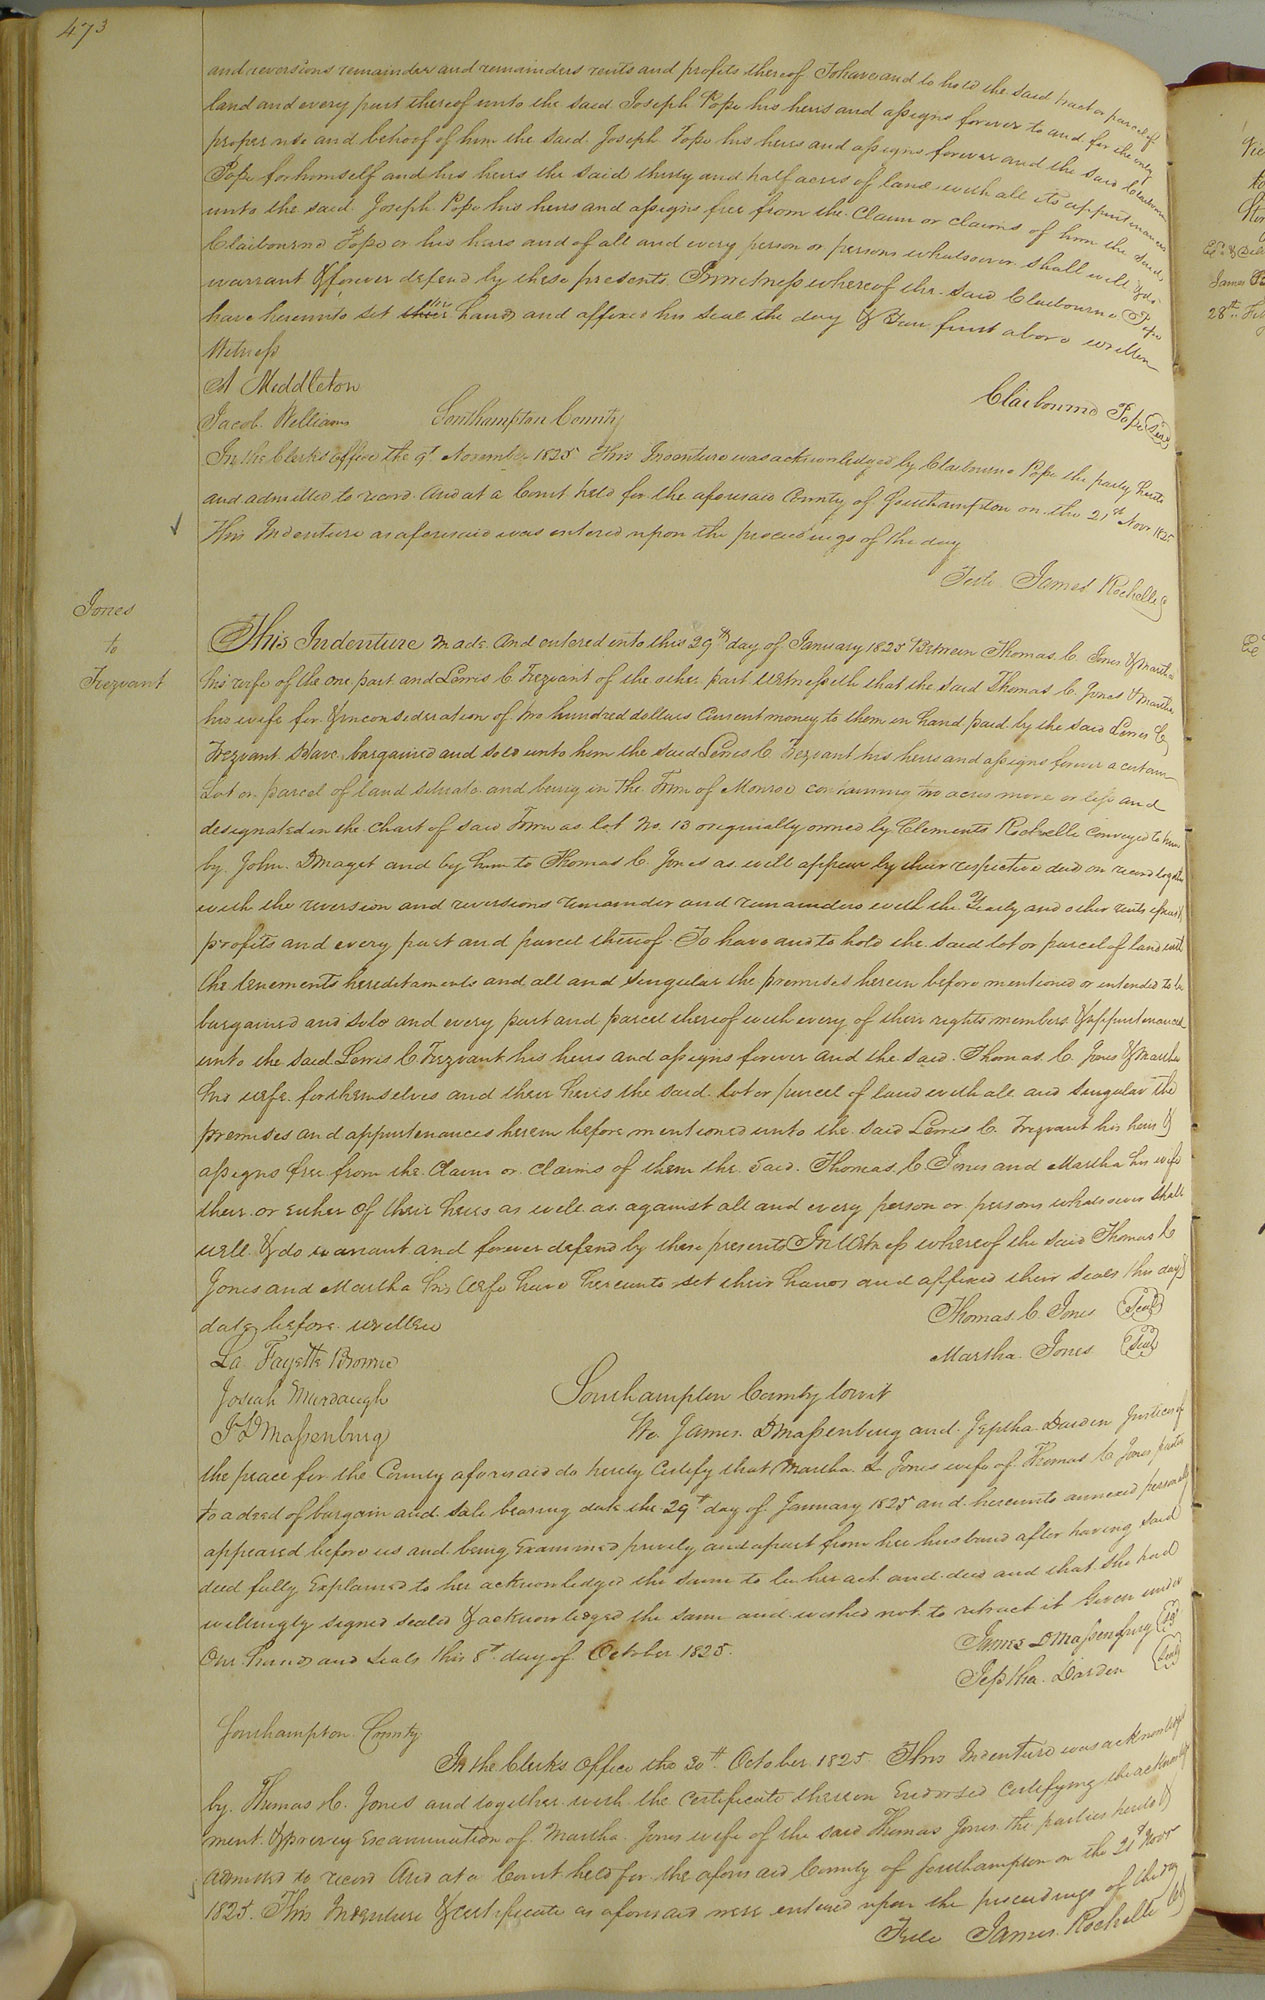 473
and reversions remainder and remainders rents and profits thereof To have and to hold the said tract or parcel of
land and every part thereof unto the said Joseph Pope his heirs and assigns forever to and for the only
proper use and behoof of him the said Joseph Pope his heirs and assigns forever and the said Claibourne
Pope for himself and his heirs the said thirty and half acres of land with all its appurtenances
unto the said Joseph Pope his heirs and assigns free from the Claim or claims of him the said
Claibourne Pope or his heirs and of all and every person or persons whatsoever shall will & do
warrant & forever defend by these presents In witness whereof the said Claibourne Pope
have hereunto set his hand and affixed his seal the day & year first above written
Witness
A Middleton
Claibourne Pope Seal
Jacob Williams Southampton County
In the Clerks office the 9th November 1825 This Indenture was acknowledged by Claibourne Pope the party hereto
and admitted to record And at a Court held for the aforesaid County of Southampton on the 21st Novr 1825
This Indenture as aforesaid was entered upon the proceedings of the day
Teste James Rochelle
Jones
to
Trezvant
This Indenture made And entered into this 29th day of January 1825 Between Thomas C. Jones & Martha
his wife of the one part and Lewis C Trezvant of the other part Witnesseth that the said Thomas C. Jones & Martha
his wife for & in consideration of two hundred dollars Current money to them in hand paid by the said Lewis C
Trezvant Have bargained and sold unto him the said Lewis C. Trezvant his heirs and assigns forever a certain
Lot or parcel of land situate and being in the Town of Monroe containing two acres more or less and
designated in the Chart of said Town as lot No. 13 originally owned by Clements Rochelle Conveyed to him
by John D Maget and by him to Thomas C. Jones as will appear by their respective deed on record together
with the reversion and reversions remainder and remainders with the Yearly and other rents
profits and every part and parcel thereof To have and to hold the said lot or parcel of land with
the tenements hereditaments and all and singular the premises herein before mentioned or intended to be
bargained and sold and every part and parcel thereof with every of their rights members & appurtenances
unto the said Lewis C Trezvant his heirs and assigns forever and the said Thomas C. Jones & Martha
his wife for themselves and their heirs the said lot or parcel of land with all and singular the
premises and appurtenances herein before mentioned unto the said Lewis C. Trezvant his heirs &
assigns free from the Claim or claims of them the said Thomas C. Jones and Martha his wife
their or either of their heirs as well as against all and every person or persons whatsoever shall
will & do warrant and forever defend by these presents In Witness whereof the said Thomas C
Jones and Martha his Wife have hereunto set their hands and affixed their seals this day &
date before written
Thomas C Jones Seal
La Fayette Browne
Martha Jones Seal
Josiah Murdaugh Southampton County towit
J D Massenburg We James D Massenburg and Jeptha Darden Justices of
the peace for the County aforesaid do hereby Certify that Martha L Jones wife of Thomas C Jones parties
to a deed of bargain and sale bearing date the 29th day of January 1825 and hereunto annexed personally
appeared before us and being Examined privily and apart from her husband after having said
deed fully Explained to her acknowledged the same to be her act and deed and that she had
willingly signed sealed & acknowledged the same and wished not to retract it Given under
Our hands and seals this 8th day of October 1825.
James D Massenburg
Jeptha Darden Seal
Southampton County
In the Clerks Office the 30th October 1825 This Indenture was acknowledged
by Thomas C. Jones and together with the Certificate thereon Endorsed Certifying the acknowledge
ment & privy Examination of Martha Jones wife of the said Thomas Jones the parties hereto &
admitted to record And at a Court held for the aforesaid County of Southampton on the 21st Novr
1825. This Indenture & certificate as aforesaid were entered upon the proceedings of the day
Teste James Rochelle